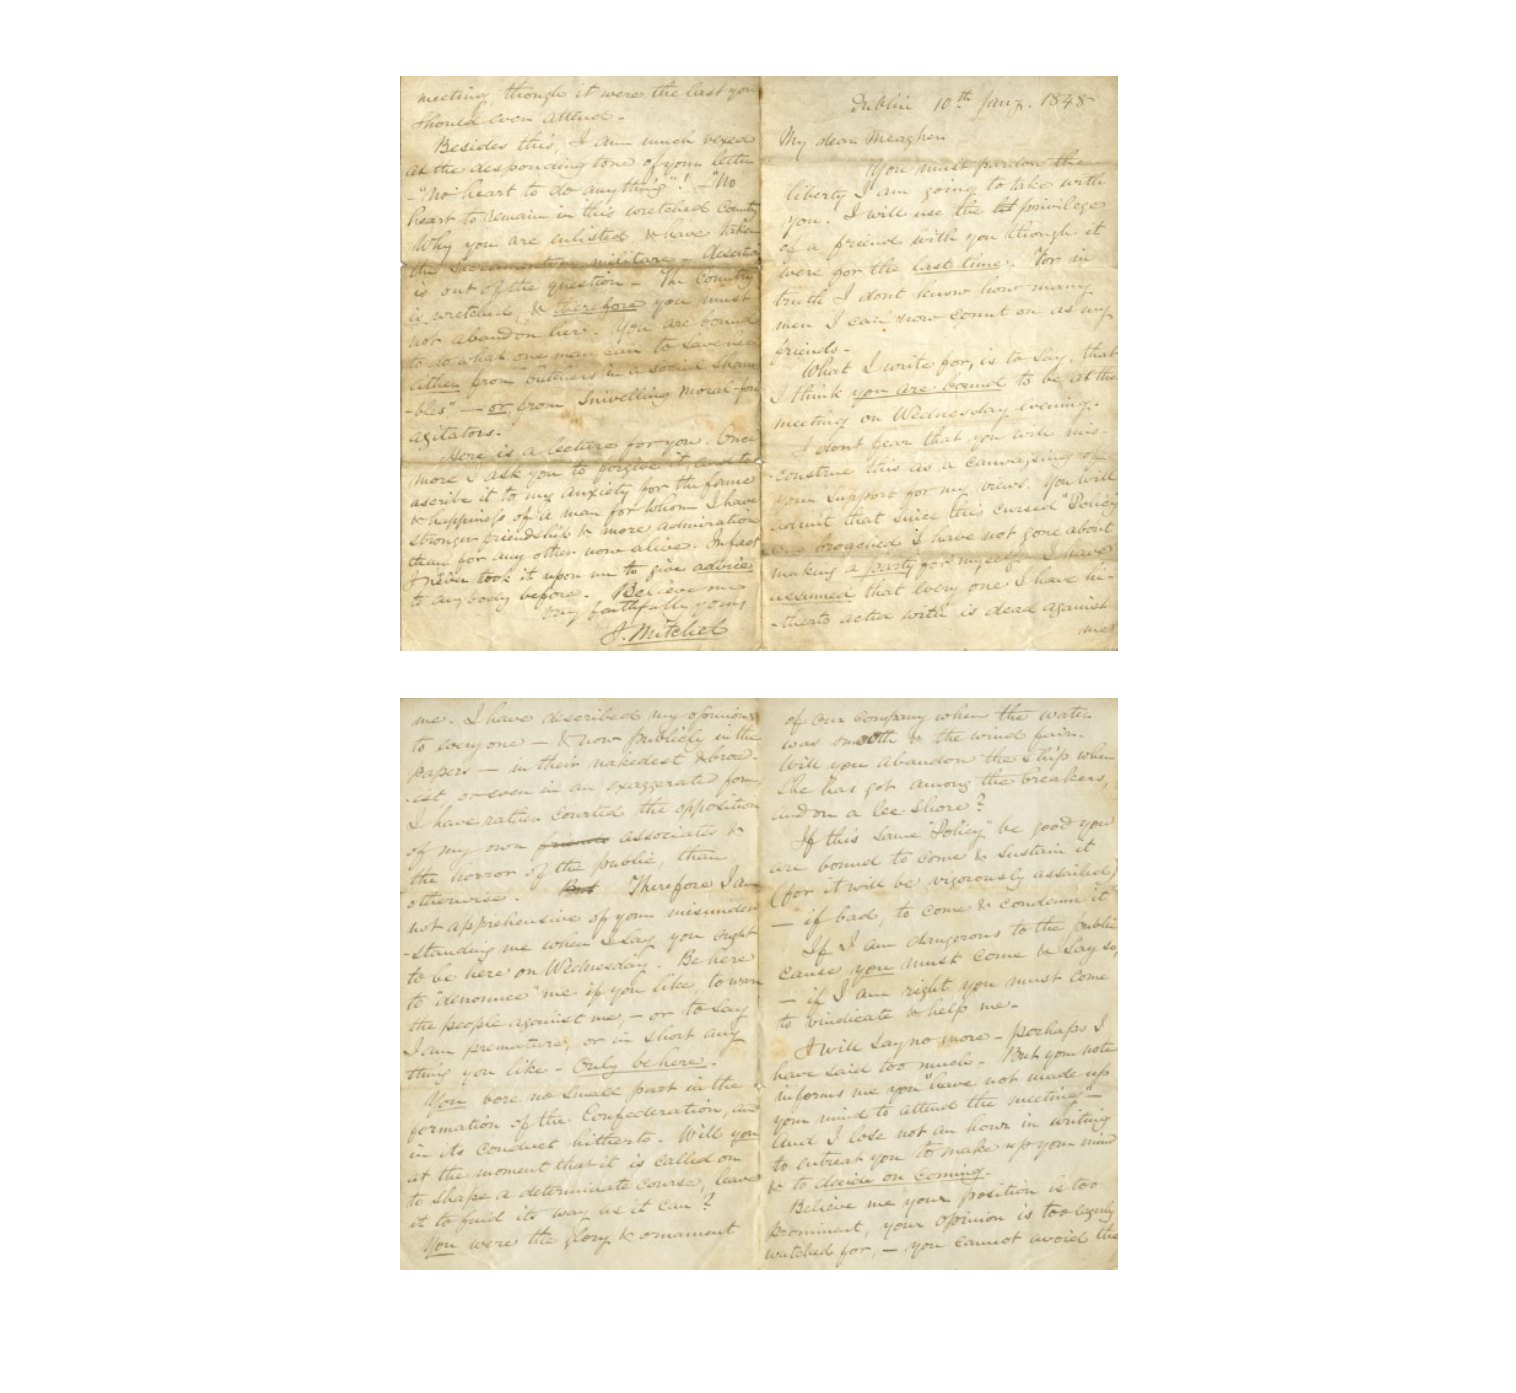 Dublin 10th Jany. 1848
My dear Meagher
You must pardon the
liberty I am going to take with
you. I will use the privilege
of a friend with you though it
were for the last time. For in
truth I dont know how many
men I can now count on as my
friends.
What I write for, is to say, that
I think you are bound to be at the
meeting on Wednesday evening.
I dont fear that you will mis-
construe this as a canvassing of
your support for my views. You will
admit that since this cursed "Policy"
was broached I have not gone about
making a party for myself. I have
assumed that every one I have hi-
-therto acted with is dead against
me.
me. I have described my opinions
to everyone — & now publicly in the
papers — in their nakedest & broad-
-est, or even in an exaggerated form.
I have rather courted the opposition
of my own friends associates &
the horror of the public, than
otherwise. But Therefore I am
not apprehensive of your misunder-
-standing me when I say you ought
to be here on Wednesday. Be here
to "denounce" me if you like, to warn
the people against me, — or to say
I am premature, or in short any
thing you like - Only be here.
You bore no small part in the
formation of the Confederation, and
in its conduct hitherto. Will you
at the moment that it is called on
to shape a determinate course, leave
it to find its way as it can?
You were the glory & ornament
of our company when the water
was smooth & the wind fair.
Will you abandon the ship when
she has got among the breakers,
and on a lee shore?
If this same "Policy" be good you
are bound to come & sustain it
(for it will be vigorously assailed)
— if bad, to come & condemn it
If I am dangerous to the public
cause you must come & say so,
— if I am right you must come
to vindicate & help me.
I will say no more - perhaps I
have said too much. But your note
informs me you "have not made up
your mind to attend the meeting" —
And I lose not an hour in writing
to entreat you to make up your mind
& to decide on coming.
Believe me your position is too
prominent, your opinion is too eagerly
watched for, — you cannot avoid the
meeting, though it were the last you
should ever attend.
Besides this, I am much vexed
at the desponding tone of your letter
- "No heart to do anything"! - "No
heart to remain in this wretched County
Why you are enlisted & have taken
the Sacramentum militare - desertion
is out of the question - The Country
is wretched, & therefore you must
not abandon her. You are bound
to do what one man can to save her
either from "butchers in a social sham
-bles" — or from snivelling moral-force
agitators.
Here is a lecture for you. Once
more I ask you to forgive it, and to
ascribe it to my anxiety for the fame
& happiness of a man for whom I have
stronger friendship & more admiration
than for any other now alive. In fact
I never took it upon me to give advice
to anybody before. Believe me
very faithfully yours
J. Mitchel